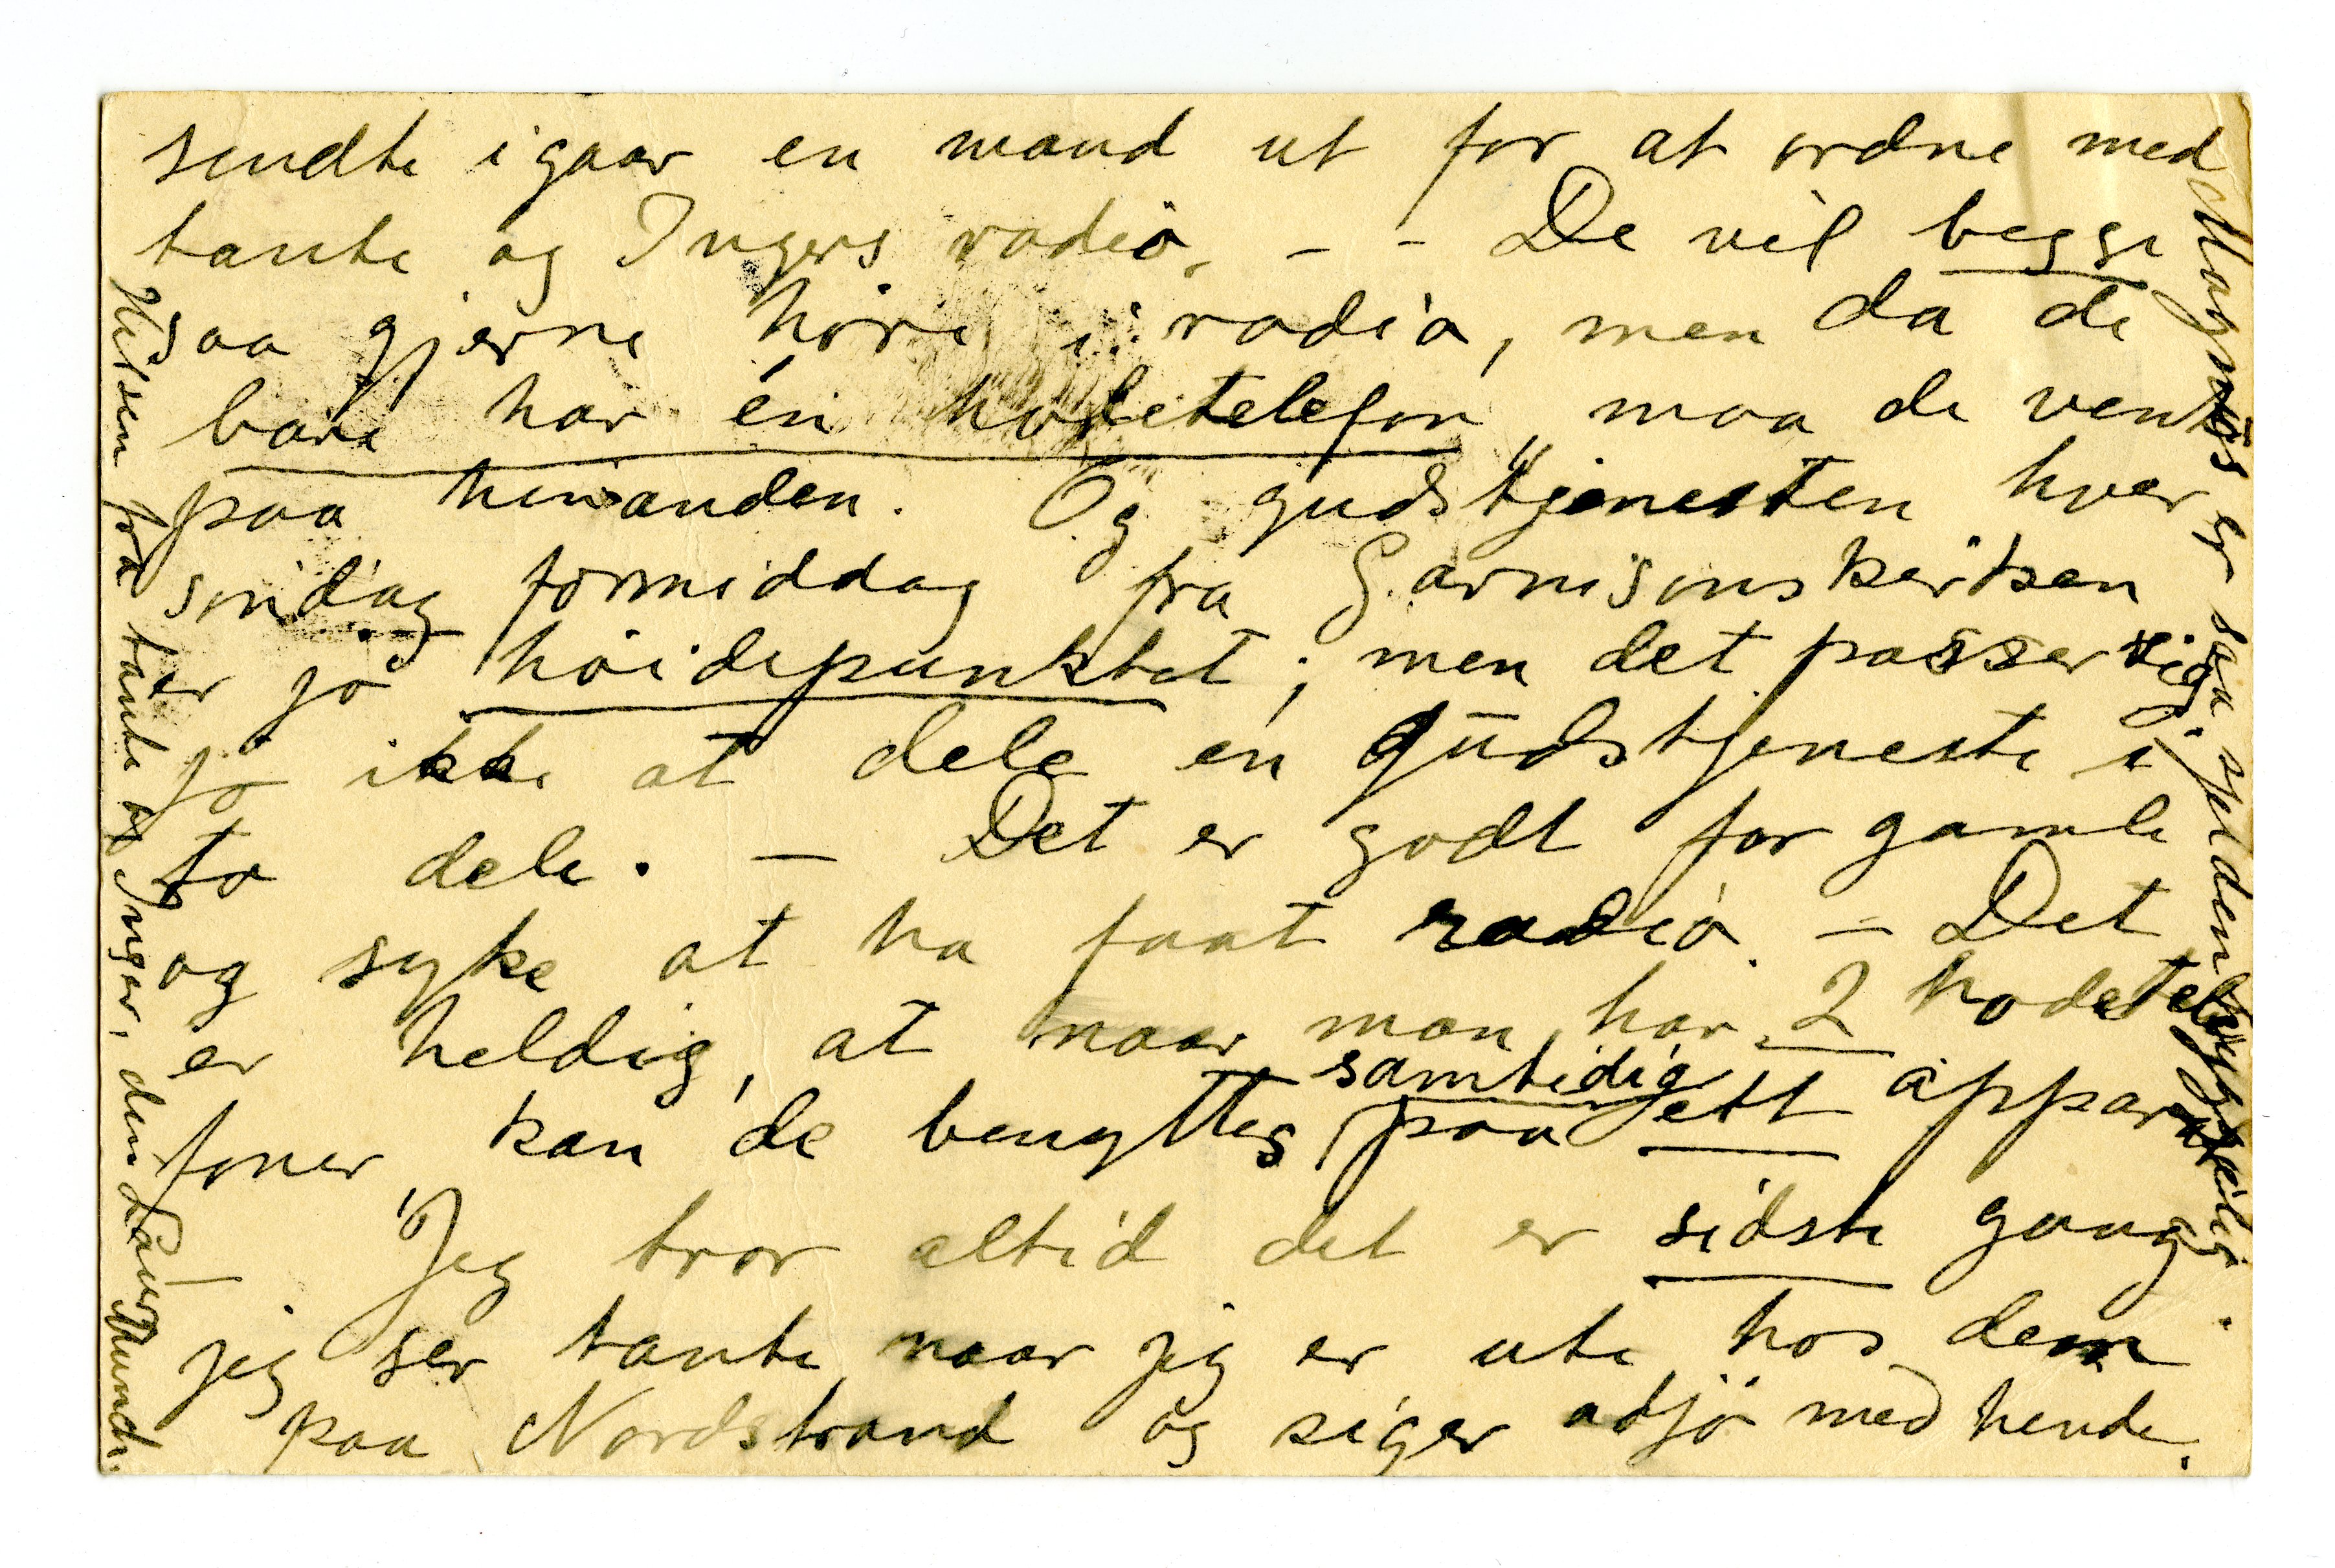 sendte igaar en mand ut for at ordne med
tante og Ingers radio. – – De vil begge
saa gjerne høre i radio, men da de
bare har én hodetelefon, maa de vente
paa hinanden. Og gudstjenesten hver
søndag formiddag fra Garnisonskirken
er jo høidepunktet; men det passer sig
jo ikke at dele en Gudstjeneste i
to dele. – Det er godt for gamle
og syke at ha faat radio. – Det
er heldig, at naar man har 2 hodetele
foner, kan de benyttes samtidig paa ett apparat.
– Jeg tror altid det er sidste gang
jeg ser tante, naar jeg er ute hos dem
paa Nordstrand og siger adjø med hende.
Magnus er saa sjelden
Hilsen fra tante og Inger, din Laura Munch.